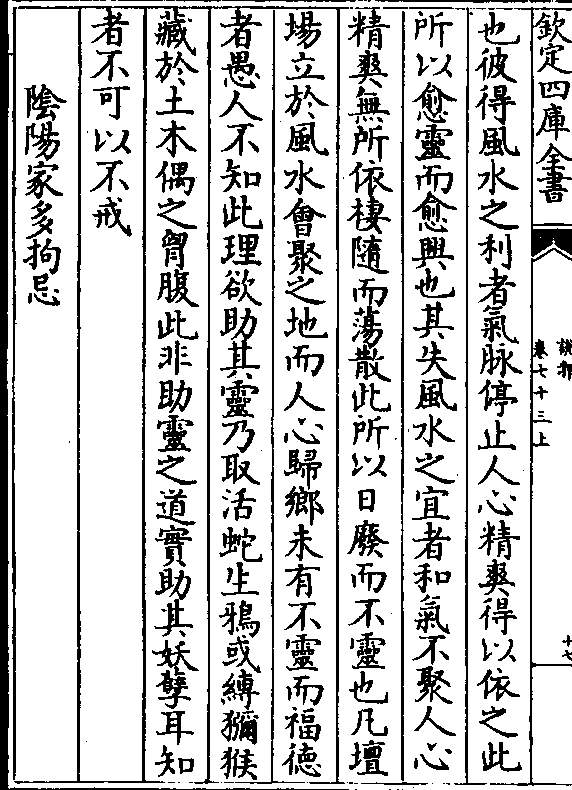 欽定四庫全書
說郛
卷七十三上
十七
也彼得風水之利者氣脉停止人心精爽得以依之此
所以愈靈而愈興也其失風水之宜者和氣不聚人心
精爽無所依棲隨而蕩散此所以日廢而不靈也凡壇
場立於風水會聚之地而人心歸鄉未有不靈而福徳
者愚人不知此理欲助其靈乃取活蛇生鴉或縛獮猴
藏於土木偶之胷腹此非助靈之道實助其妖孽耳知
者不可以不戒
陰陽家多拘忌